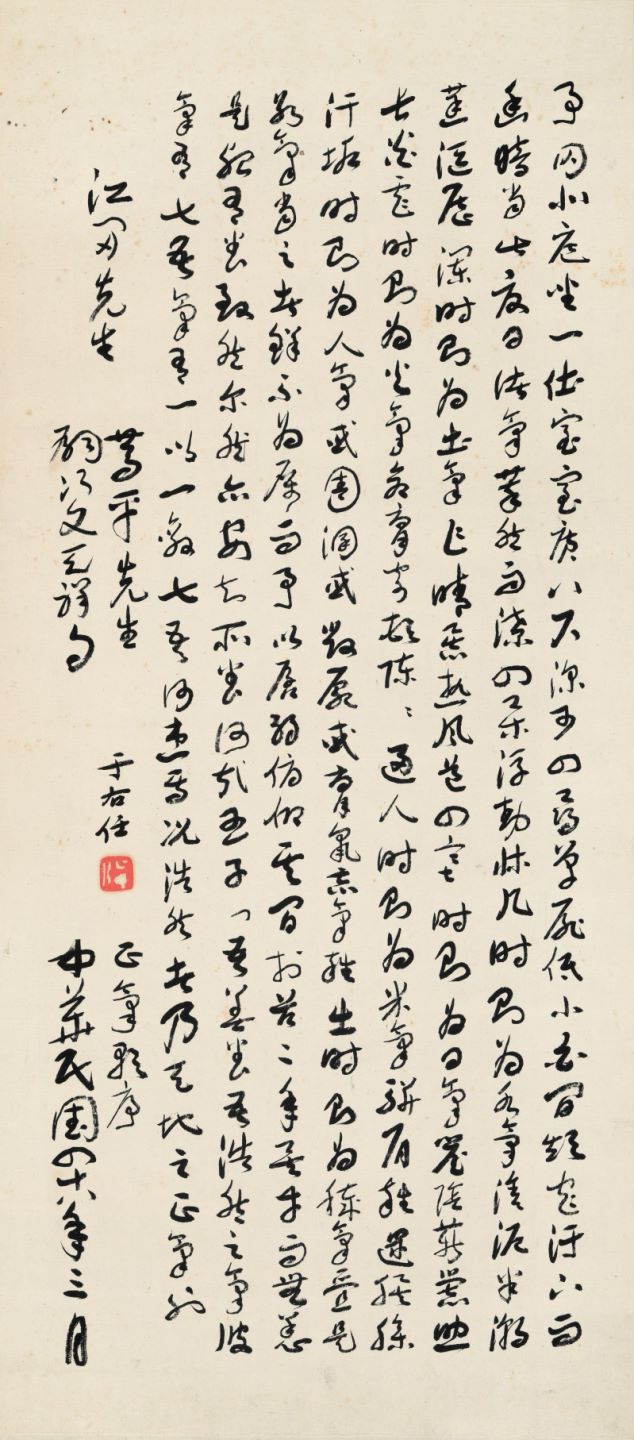 予囚北庭坐一土室室廣八尺深可四尋單扉低小白間短窄汙下而
幽暗當此夏日諸氣萃然雨潦四集浮動牀几時則為水氣塗泥半潮
蒸漚歷瀾時則為土氣乍晴暴熱風道四塞時則為日氣簷陰薪爨助
長炎虐時則為火氣倉腐寄頓陳陳逼人時則為米氣駢肩雜遝腥臊
汗垢時則為人氣或圊溷或毀屍或腐鼠惡氣雜出時則為穢氣疊是
數氣當之者鮮不為厲而予以孱弱俯仰其間於茲二年矣幸而無恙
是殆有養致然爾然亦安知所養何哉孟子曰吾善養吾浩然之氣彼
氣有七吾氣有一以一敵七吾何患焉況浩然者乃天地之正氣也
先生
平先生
文天祥句
于右任
正氣歌序
中華民國四十八年三月